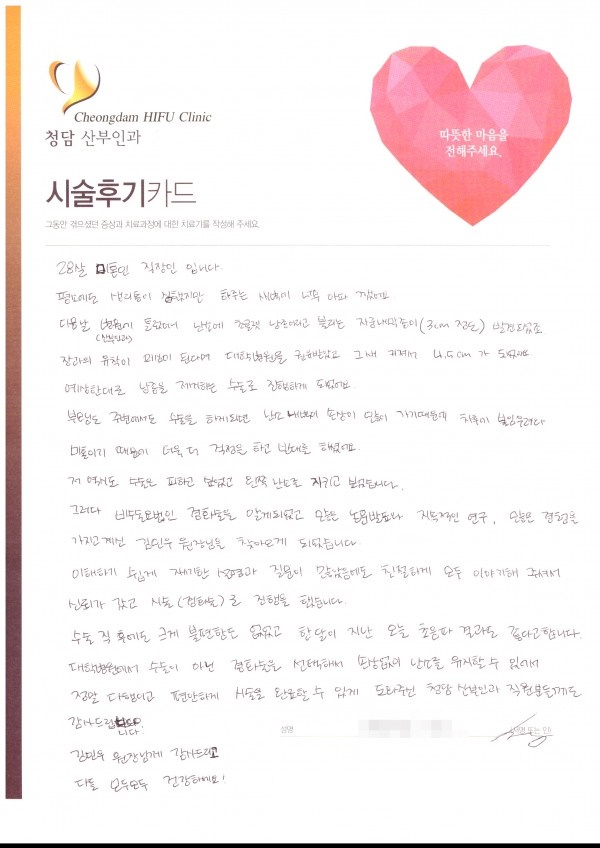 Cheongdam HIFU Clinic
청담 산부인과
따뜻한 마음을
전해주세요.
시술후기카드
그동안 겪으셨던 증상과 치료과정에 대한 치료기를 작성해 주세요.
28살 미혼인 직장인 입니다.
평소에도 생리통이 심했지만 하루는 새벽에 너무 아파 깼어요.
다음날 병원에 들렀더니 난소에 초콜렛 낭종이라고 불리는 자궁내막종이(3cm 정도) 발견되었죠
(산부인과)
잔과의 유착이 의심이 된다며 대학병원을 권해받았고 그새 커져서 4.5cm가 되었어요
예상한대로 낭종을 제거하는 수술로 진행하게 되었어요.
부모님도 주변에서도 수술을 하게되면 난소 손상이 많이 가기때문에
미혼이기 때문에 더욱 더 걱정을 하고 반대를 했었어요.
저 역시도 수술은 피하고 싶었고 왼쪽 난소를 지키고 싶었습니다.
그러다 비수술요법인 경화술을 알게되었고 많은 논문발표나 지속적인 연구, 많은 경험을
가지고계신 김민우 원장님을 찾아오게 되었습니다.
이해하기 쉽게 자세한 설명과 질문이 많았음에도 친절하게 모두 이야기해 주셔서
신뢰가 갔고 시술(경화술)로 진행을 했습니다.
수술 직후에도 크게 불편함도 없었고 한달이 지난 오늘 초음파 결과도 좋다고합니다.
대학병원에서 수술이 아닌 경화술을 선택해서 손상없이 난소를 유지할 수 있어서
정말 다행이고 편안하게 시술을 완료할 수 있게 도와주신 청담산부인과 직원분들께도
감사드립니다!
성명
(서명 또는 인)
김민우 원장님께 감사드리고
다들 모두모두 건강하세요!